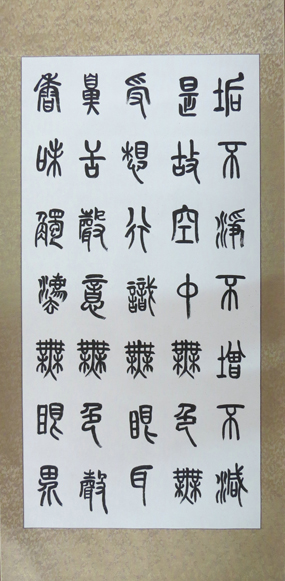 垢不淨不增不減
是故空中無色無
受想行識無眼耳
鼻舌聲意無色聲
香味觸法無眼界